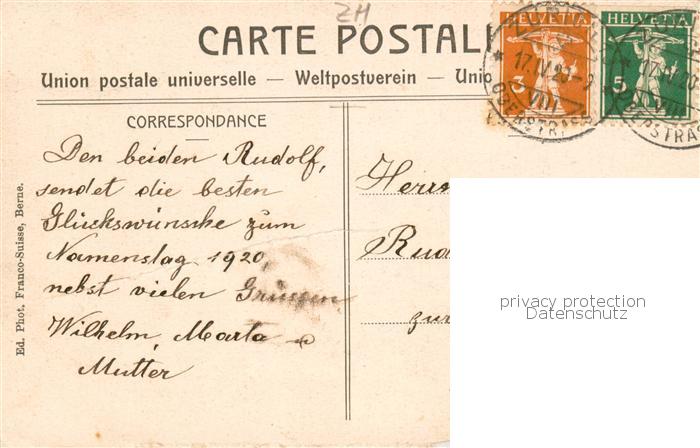 ZH
CARTE POSTALE
Union postale universelle — Weltpostverein — Unio
CORRESPONDANCE
Den beiden Rudolf,
sendet die besten
Glückswünsche zum
Namenstag 1920,
nebst vielen Grüssen
Wilhelm, Marta &
Mutter
Herrn
Rud
zur
Ed. Phot. Franco-Suisse, Berne.
HELVETIA
3
HELVETIA
5
17.IV.20
VIII
privacy protection
Datenschutz